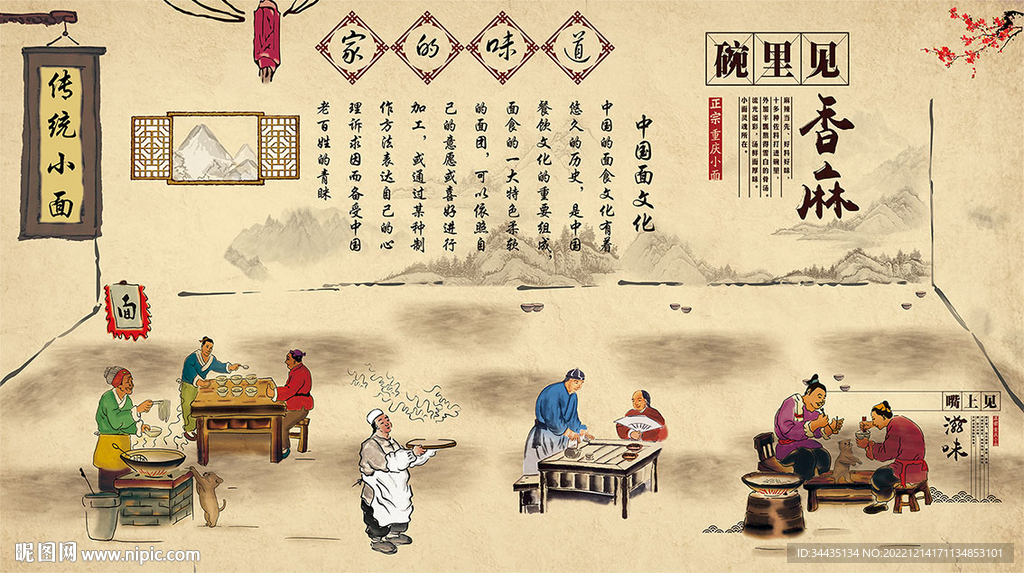 传统小面
家的味道
中国面文化
中国的面食文化有着
悠久的历史，是中国
餐饮文化的重要组成，
面食的一大特色柔软
的面团，可以依照自
己的意愿或喜好进行
加工，或通过某种制
作方法表达自己的心
理诉求因而备受中国
老百姓的青睐
碗里见
香麻
麻辣当先，好料好味
十多种佐料打造碗里，
外加半瓢熬得雪白的骨汤，
流光溢彩，汤鲜面厚味，
小面灵魂所在。
正宗重庆小面
面
嘴上见
滋味
昵图网 www.nipic.com
ID:34435134 NO:20221214171134853101